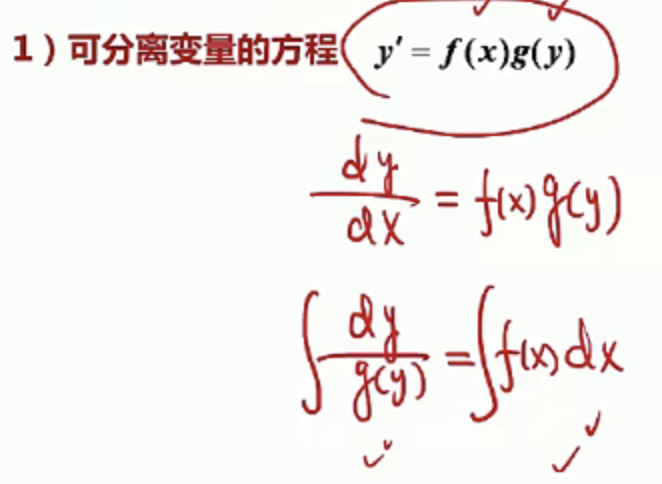 1）可分离变量的方程 y′ = f(x)g(y)
dy/dx = f(x)g(y)
∫ dy/g(y) = ∫ f(x)dx